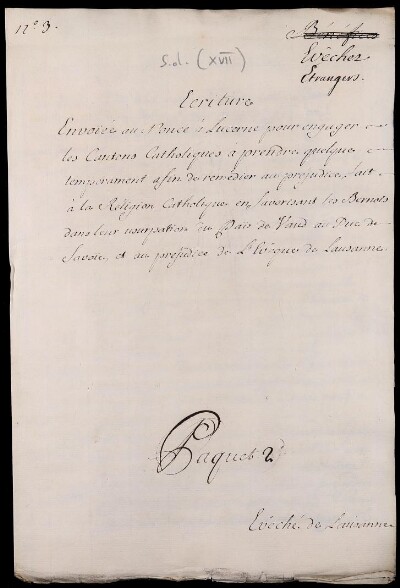 N.º 3.
Bénéfices
Evêchez
Etrangers.
S.d. (XVII)
Ecriture
Envoiée au Nonce à Lucerne pour engager
les Cantons Catholiques à prendre quelque
temperament afin de remedier au prejudice fait
à la Réligion Catholique en favorisant les Bernois
dans leur usurpation du Païs de Vaud au Duc de
Savoie, et au prejudice de L'Evêque de Lausanne.
Paquet 2.d
Evêché de Lausanne